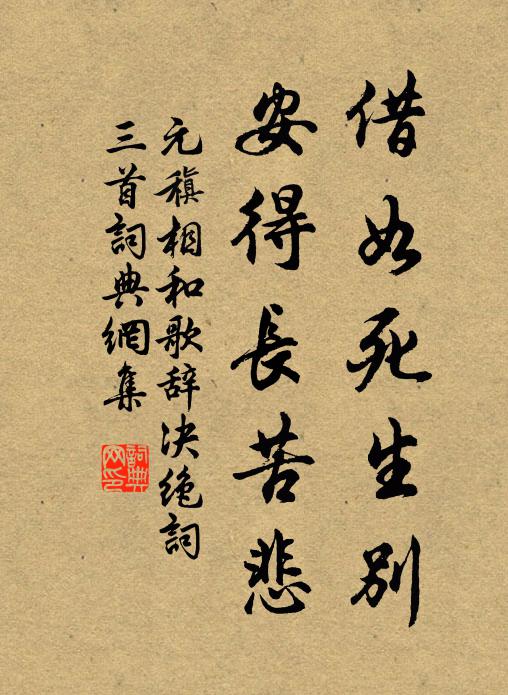 借如死生别
安得長苦悲
元稹相和歌辞决绝詞
三首詞典網集
詞典网印